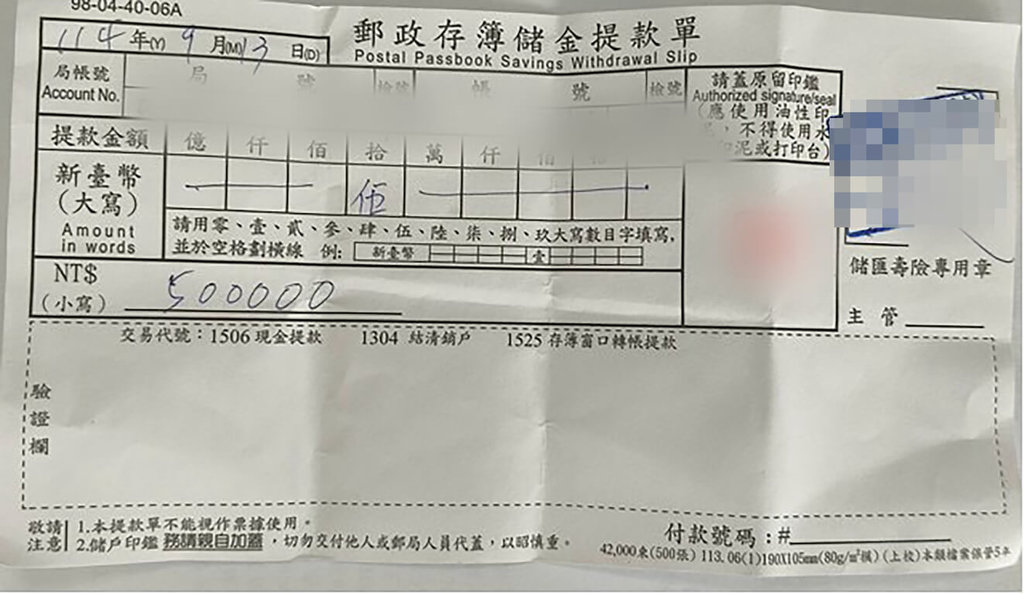 98-04-40-06A
郵政存簿儲金提款單
Postal Passbook Savings Withdrawal Slip
114年(Y) 9月(M) 13日(D)
局帳號 局 號 檢號 帳 號 檢號
Account No.
請蓋原留印鑑
Authorized signature/seal
(應使用油性印
,不得使用水
泥或打印台)
提款金額 億 仟 佰 拾 萬 仟 佰
新臺幣 伍
(大寫)
Amount
in words
請用零、壹、貳、參、肆、伍、陸、柒、捌、玖大寫數目字填寫,
並於空格劃橫線 例: 新臺幣 壹
NT$
(小寫) 500000
儲匯壽險專用章
主管
交易代號:1506 現金提款 1304 結清銷戶 1525 存簿窗口轉帳提款
驗
證
欄
敬請 1.本提款單不能視作票據使用。
注意 2.儲戶印鑑務請親自加蓋,切勿交付他人或郵局人員代蓋,以昭慎重。
付款號碼:#
42,000束(500張) 113.06(1)190X105mm(80g/m²模)(上校)本類檔案保管5年